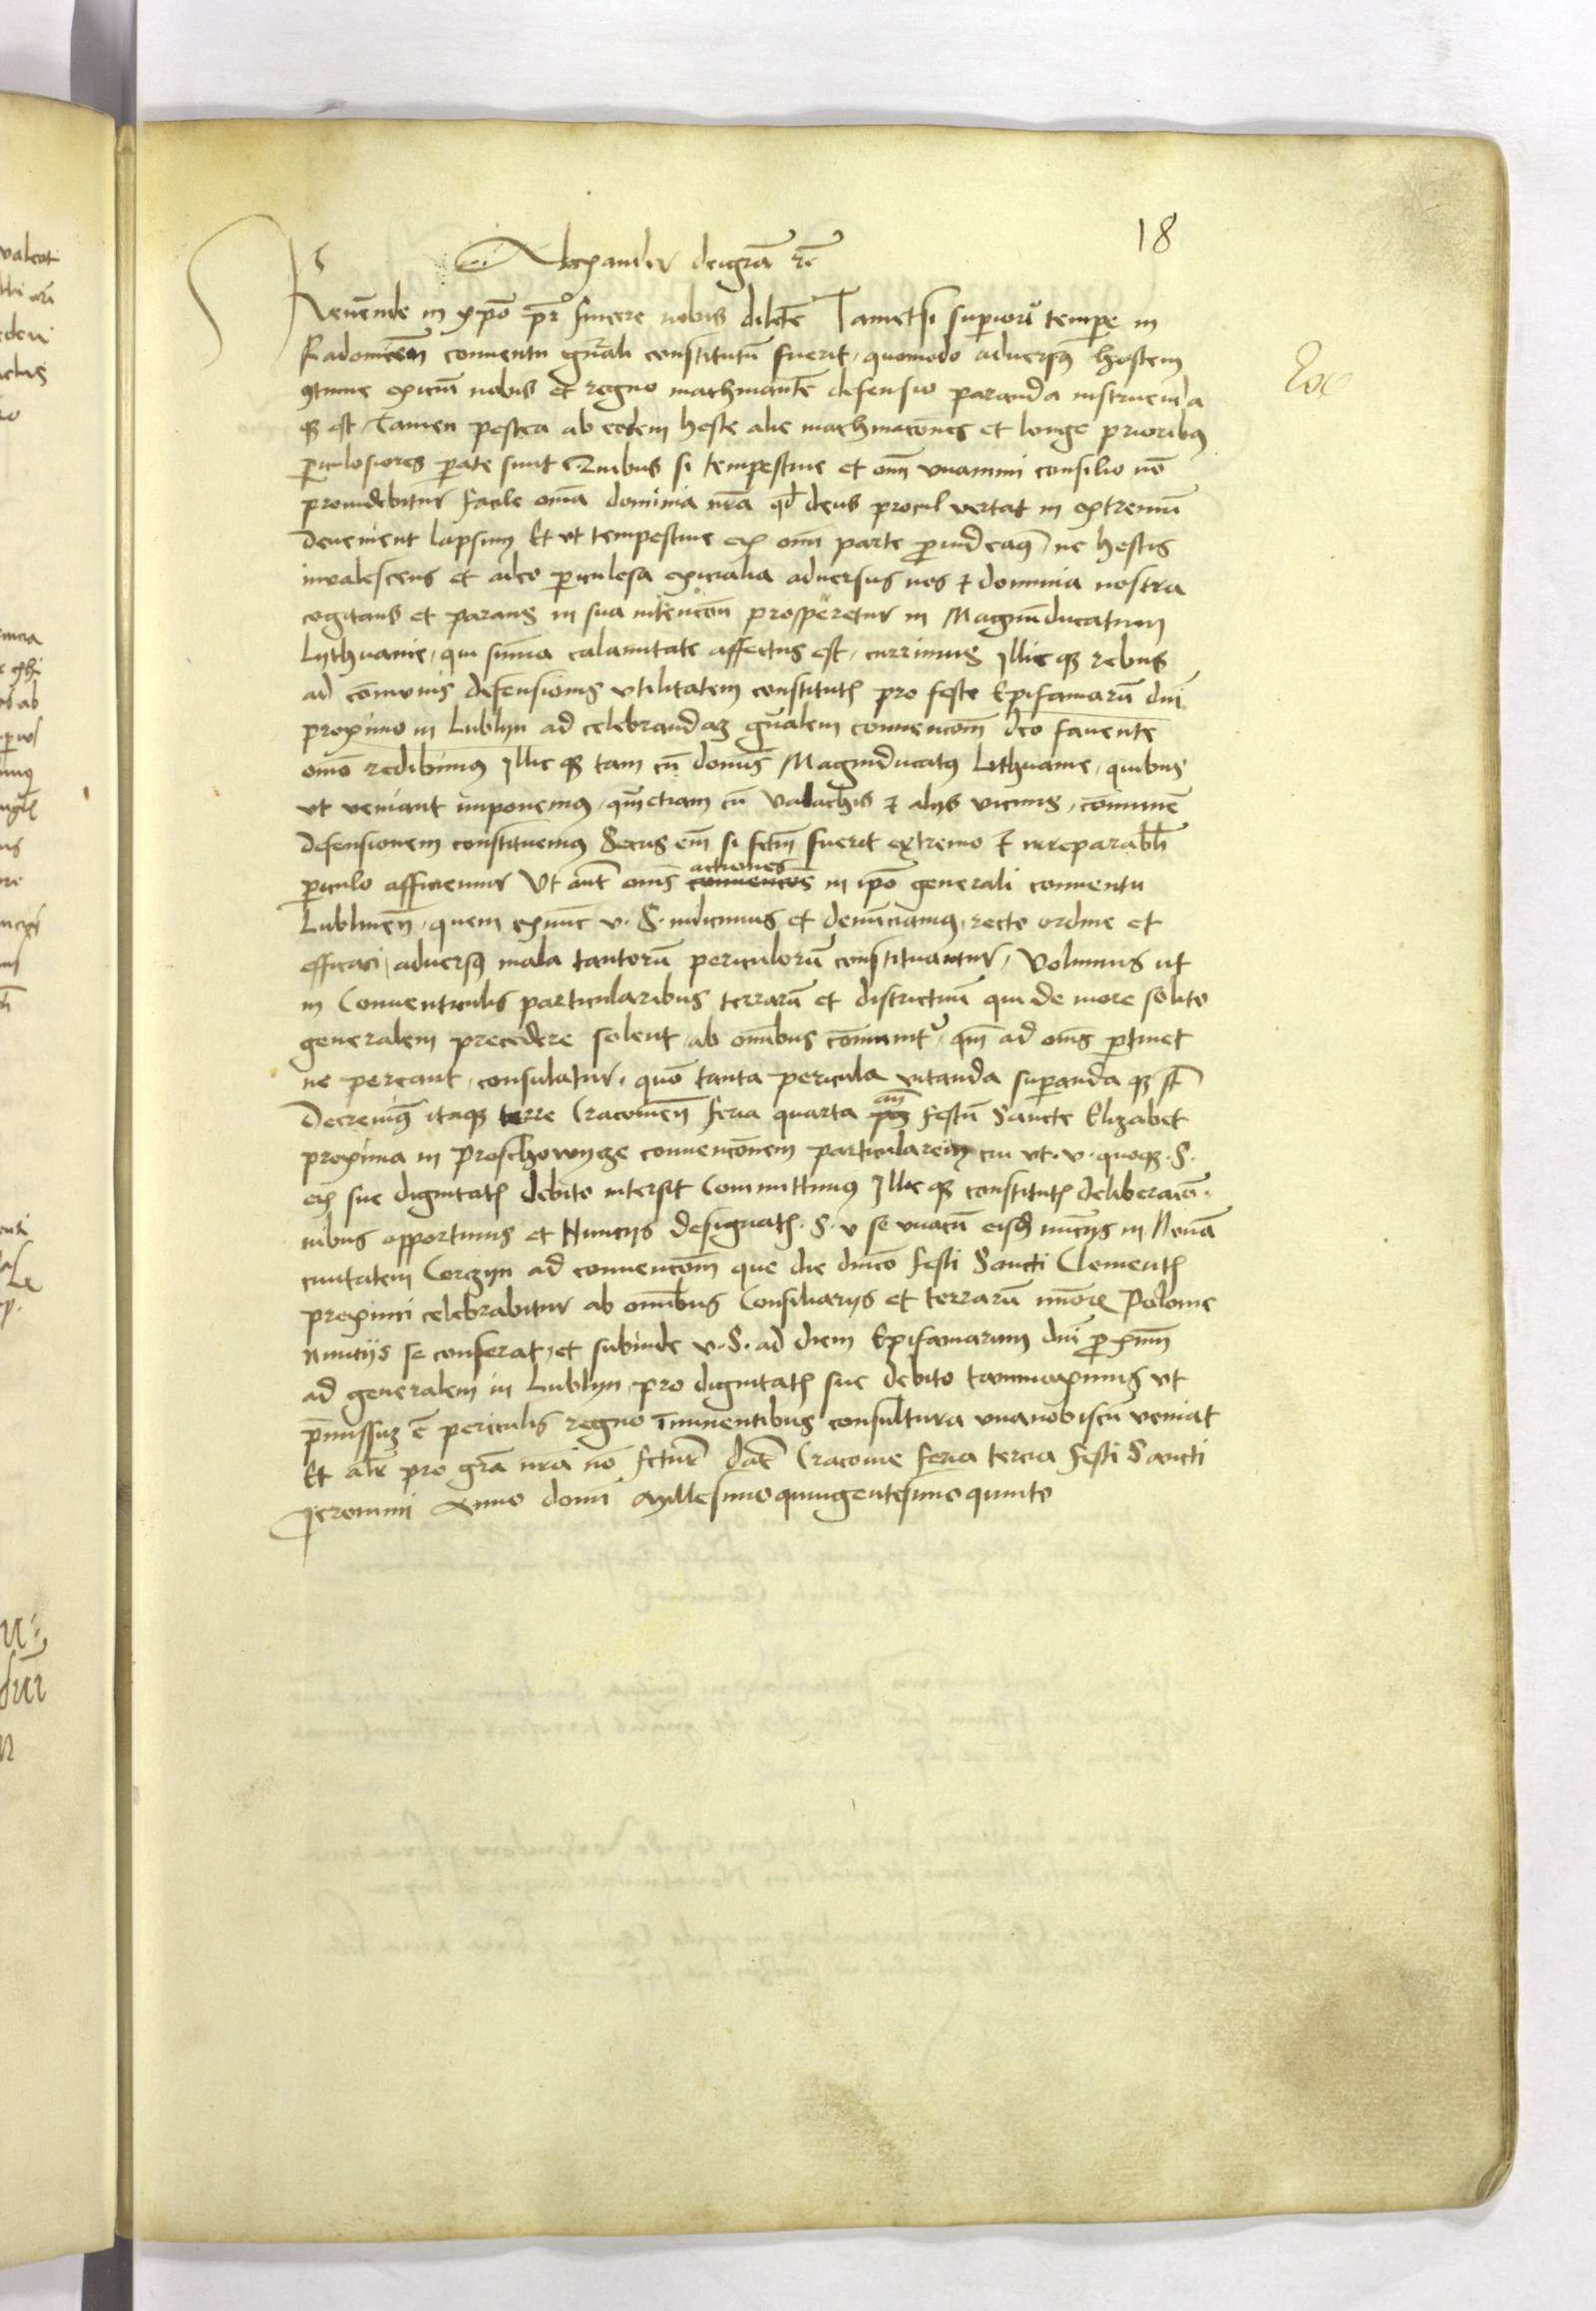 18
Alexander dei gra͞ ꝛc͞
Reue͞nde in xp͞o pr͞ sincere nobis dilc͞te Tametsi superiori tempe͞ in
Radomien͞ conuentu gn͞rali constitutu͞ fuerit, quomodo aduersꝰ hostem
ꝯtinue exiciu͞ nobis et regno machinante͞ defensio paranda instruenda
qꝫ est, Tamen postea ab eodem hoste alie machinac͞ones et longe prioribꝰ
ꝑiculosiores ꝑate sunt Quibus si tempestiue et om͞i vnanimi consilio no͞
prouidebitur facile om͞ia dominia nr͞a qd͞ deus procul vertat in extremu͞
deuenient lapsum Et vt tempestiue ex om͞i parte ꝓuideamꝰ, ne hostis
inualescens et adeo ꝑiculosa exicialia aduersus nos ⁊ dominia nostra
cogitans et parans in sua intenc͞on prosperetur in Magnu͞ducatum
Lythuanie, qui sum͞a calamitate affectus est, currimus Illic qꝫ rebus
ad co͞munis defensionis vtilitatem constitutis pro festo Epifaniaru͞ dni͞
proximo in Lublyn ad celebrandaꝫ gn͞alem conuenc͞om deo fauente
om͞o redibimus Illic qꝫ tam cu͞ domi͞s Magniducatꝰ Lithuanie, quibus
vt veniant imponemꝰ, qm͞etiam cu͞ Valachis ⁊ alys vicinis, co͞mune͞
defensionem constituemus Secus em͞ si fctm͞ fuerit extremo ⁊ irreparabli͞
ꝑiculo afficiemur Vt aut͞ om͞s conuenc͞os actiones in ip͞o generali conuentu
Lublinen͞, quem exnunc v. S. indicimus et denu͞ciamus, recto ordine et
efficaci, aduersꝰ mala tantoru͞ periculoru͞ constituantur, Volumus ut
in Conuenticulis particularibus terraru͞ et districtuu͞ qui de more solito
generalem precedere solent, ab om͞ibus co͞munitr͞, qm͞ ad om͞s ꝑtinet
ne pereant, consulatur, quo͞ tanta pericula vitanda suꝑanda qꝫ st͞
Decreuimꝰ itaqꝫ terre Cracouien͞ feria quarta poꝫ an͞ festu͞ Sancte Elizabet
proxima in Proschowycze conuenc͞onem particularem cui vt. v. quoqꝫ. S.
ex sue dignitatis debito intersit Committimus Illic qꝫ constitutis deliberac͞o
nibus opportunis et Nunctys designatis. S. v se vnacu͞ eisd͞ nu͞ctys in Noua͞
ciuitatem Corczyn ad conuenc͞om que die dnico͞ festi Sancti Clementis
proximi celebrabitur ab om͞ibus Consiliarys et terraru͞ mi͞oris Polonie
nuncijs se conferat, et subinde v. S. ad diem Epifaniarum dni͞ ꝓximu͞
ad generalem in Lublyn, pro dignitatis sue debito
p͞missuꝫ e͞ periculis regno i͞minentibus consultura vnanobiscu͞ veniat
Et alr͞ pro gra͞ nr͞a no͞ fctur͞ Dat͞ Cracouie feria tercia festi Sancti
Jeronimi Anno domi͞ Millesimoquingentesimoquinto